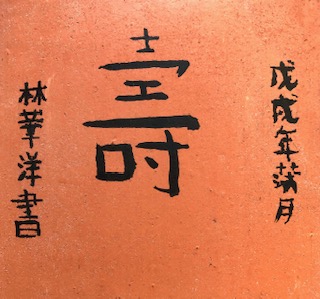 戊戌年蒲月
壽
林華洋書